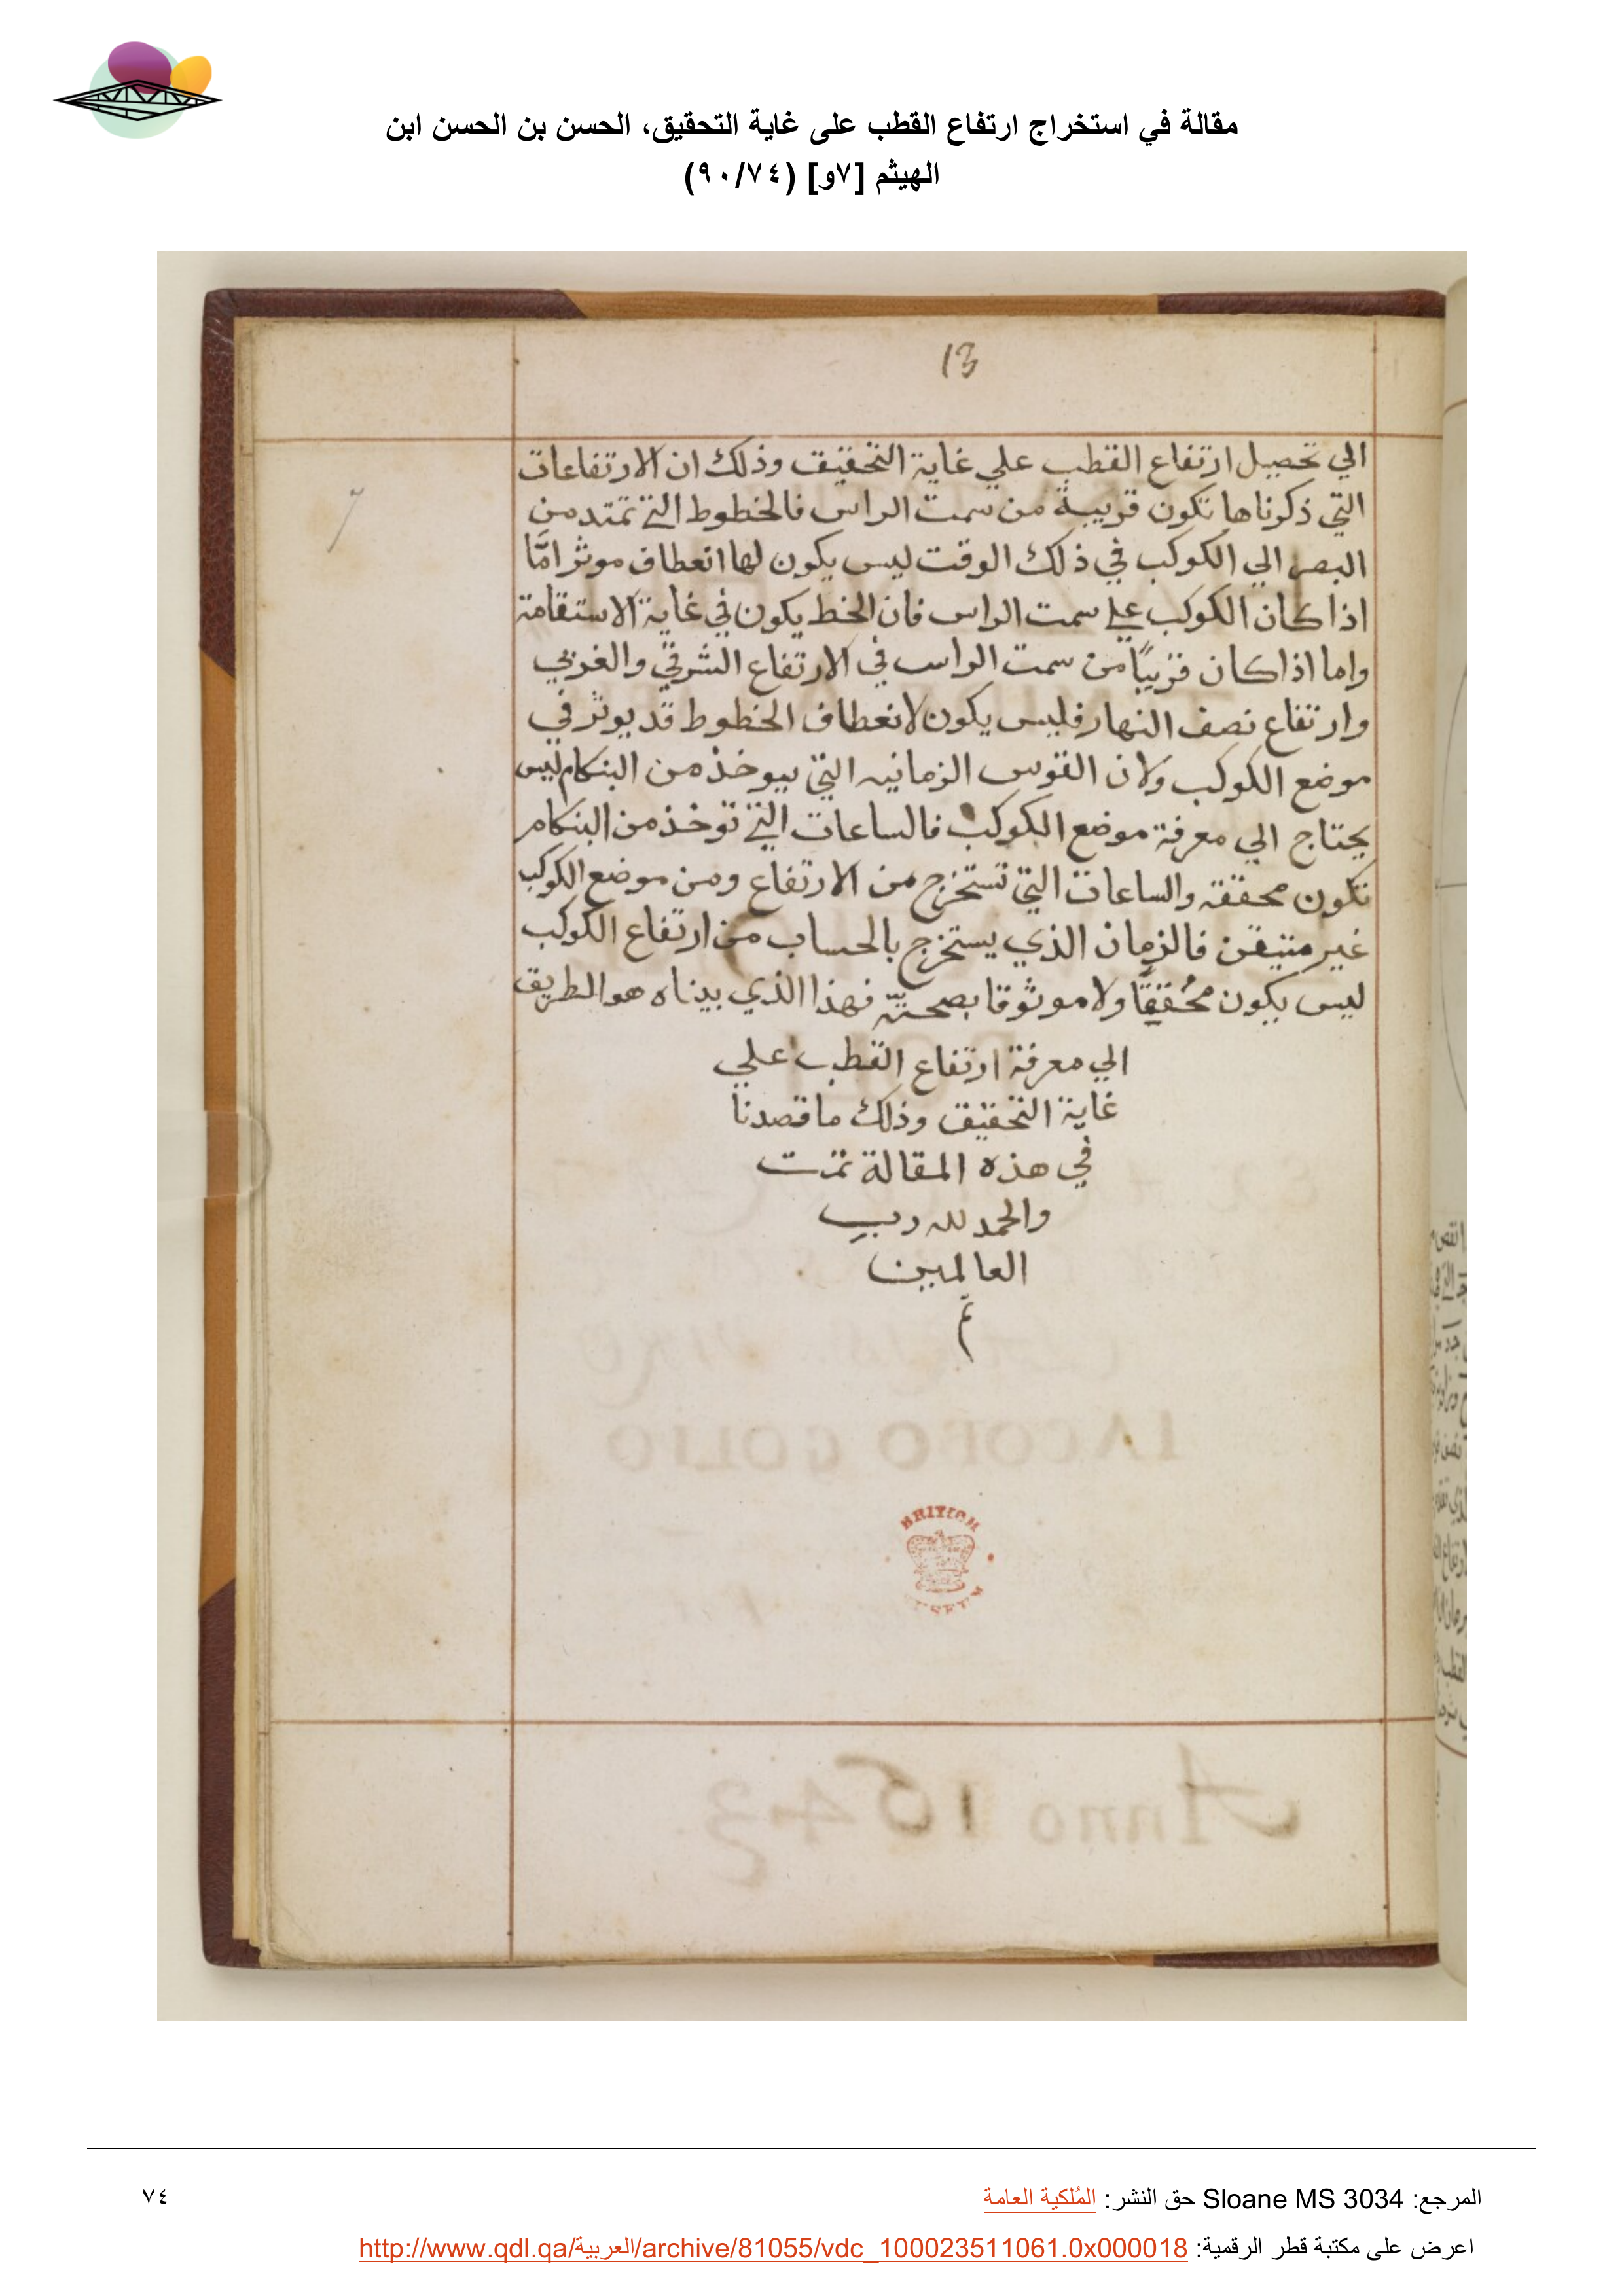 مقالة في استخراج ارتفاع القطب على غاية التحقيق، الحسن بن الحسن ابن
الهيثم [٧و] (٩٠/٧٤)
13
7
الي تحصيل ارتفاع القطب علي غاية التحقيق وذلك ان الارتفاعات
التي ذكرناها تكون قريبة من سمت الراس فالخطوط التي تمتد من
البصر الي الكوكب في ذلك الوقت ليس يكون لها انعطاف موثر امّا
اذا كان الكوكب علي سمت الراس فان الخط يكون في غاية الاستقامة
واما اذا كان قريبًا من سمت الراس في الارتفاع الشرقي والغربي
وارتفاع نصف النهار فليس يكون لانعطاف الخطوط قد يوثر في
موضع الكوكب ولان القوس الزمانيه التي يوخذ من البنكام ليس
يحتاج الي معرفة موضع الكوكب فالساعات التي توخذ من البنكام
تكون محققه والساعات التي تستخرج من الارتفاع ومن موضع الكوكب
غير متيقن فالزمان الذي يستخرج بالحساب من ارتفاع الكوكب
ليس يكون محُققًا ولا موثوقا بصحتّه فهذا الذي بيناه هو الطريق
الي معرفة ارتفاع القطب علي
غاية التحقيق وذلك ما قصدنا
في هذه المقالة تمت
والحمد لله رب
العالمين
تم
IACOBO GOLIO
BRITISH
MUSEUM
Anno 1643
المرجع: Sloane MS 3034 حق النشر: المُلكية العامة
٧٤
اعرض على مكتبة قطر الرقمية: http://www.qdl.qa/العربية/archive/81055/vdc_100023511061.0x000018